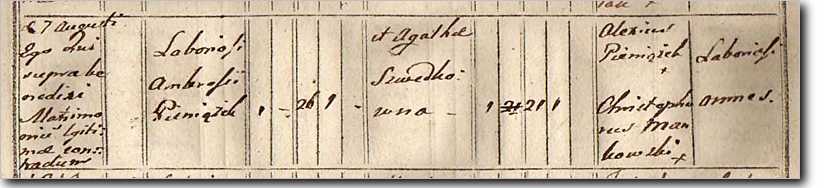 27 Augusti
Ego Qui
supra be
nedixi
Matrimo
nium legiti-
me cons-
Laboriosi
Ambrosii
Pieniązek
1 - 26 1
et Agatha
Szwedko:
wna -
1 21 21 1
Alexius
Pieniązek
Christopho
rus Mań
kowski +
Laboriosi
omnes.